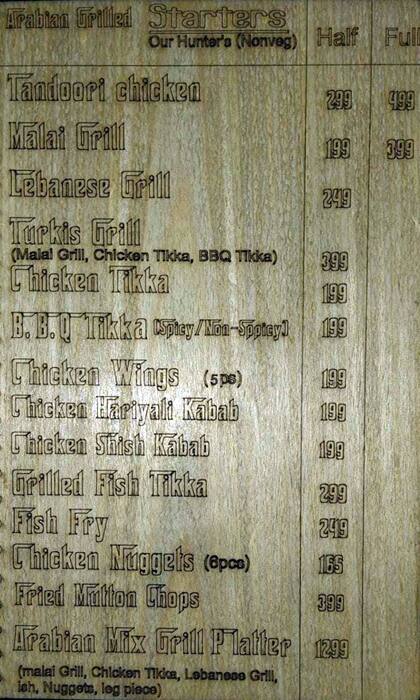 Arabian Grilled Starters
Our Hunter's (Nonveg) Half Full
Tandoori chicken 299 499
Malai Grill 199 399
Lebanese Grill 249
Turkis Grill
(Malai Grill, Chicken Tikka, BBQ Tikka) 399
Chicken Tikka 199
B.B.Q Tikka (Spicy/Non-Sppicy) 199
Chicken Wings (5ps) 199
Chicken Hariyali Kabab 199
Chicken Shish Kabab 199
Grilled Fish Tikka 299
Fish Fry 249
Chicken Nuggets (6pcs) 165
Fried Mutton Chops 399
Arabian Mix Grill Platter 1299
(malai Grill, Chicken Tikka, Lebanese Grill,
ish, Nuggets, leg piece)